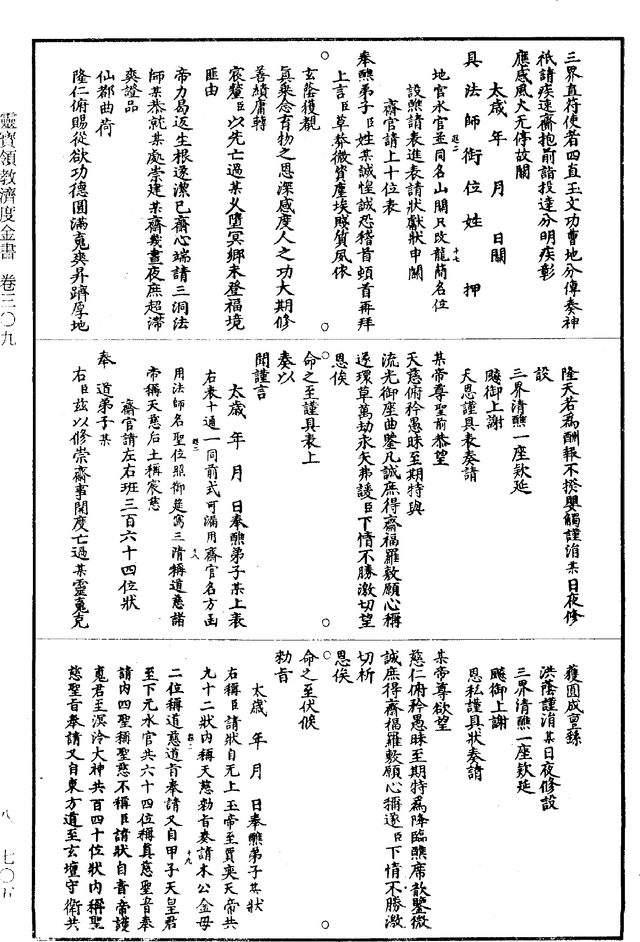 三界直符使者四直玉文功曹地分傳奏神
祇請疾速齎抱前詣投達分明疾彰
應感風火无停故關
太歲年月日關
具法師銜位姓押
地官水官並同名山關只改龍簡名位
設醮請表進表請狀獻狀申關
齋官請上十位表
奉醮弟子臣姓某誠惶誠恐稽首頓首再拜
上言臣草莽微質塵埃賤質風依
玄蔭獲覩
真乘念育物之恩深感度人之功大期修
善績庸轉
宸釐臣以先亡過某乂墮冥鄉未登福境
匪由
帝力曷返生根遂潔已齋心端請三洞法
師某恭就某處崇建某齋幾晝夜庶超滯
爽證品
仙都曲荷
隆仁俯賜從欲功德圓滿䰟爽昇躋厚地
隆天若爲酬報不揆嬰觸謹涓某日夜修
設
三界清醮一座欵延
飈御上謝
天恩謹具表奏請
某帝尊聖前恭望
天慈俯矜愚昧至期特與
流光御座曲鑒凡誠庶得齋福羅敷願心稱
遂環草萬劫永矢弗諼臣下情不勝激切望
恩俟
命之至謹具表上
奏以
聞謹言
太歲年月日奉醮弟子某上表
右表十通一同前式可漏用齋官名方函
用法師名聖位照御筵寫三清稱道慈諸
帝稱天慈后土稱宸慈
齋官請左右班三百六十四位狀
奉道弟子某
右臣玆以修崇齋事開度亡過某靈䰟克
獲圓成皇繇
洪蔭謹涓某日夜修設
三界清醮一座欵延
飈御上謝
恩私謹具狀奏請
某帝尊欲望
慈仁俯矜愚昧至期特爲降臨醮席歆鑒微
誠庶得齋福羅敷願心稱遂臣下情不勝激
切祈
恩俟
命之至伏候
勑旨
太歲年月日奉醮弟子某狀
右稱臣請狀自无上玉帝至賈奕天帝共
九十二狀內稱天慈勑旨奏請木公金母
二位稱道慈道旨奉請又自甲子天皇君
至下元水官共六十四位稱真慈聖旨奉
請內四聖稱聖慈不稱臣請狀自青帝護
䰟君至溟泠大神共百四十位狀內稱聖
慈聖旨奉請又自東方道至玄壇守衛共
靈寶領教濟度金書 卷三〇九